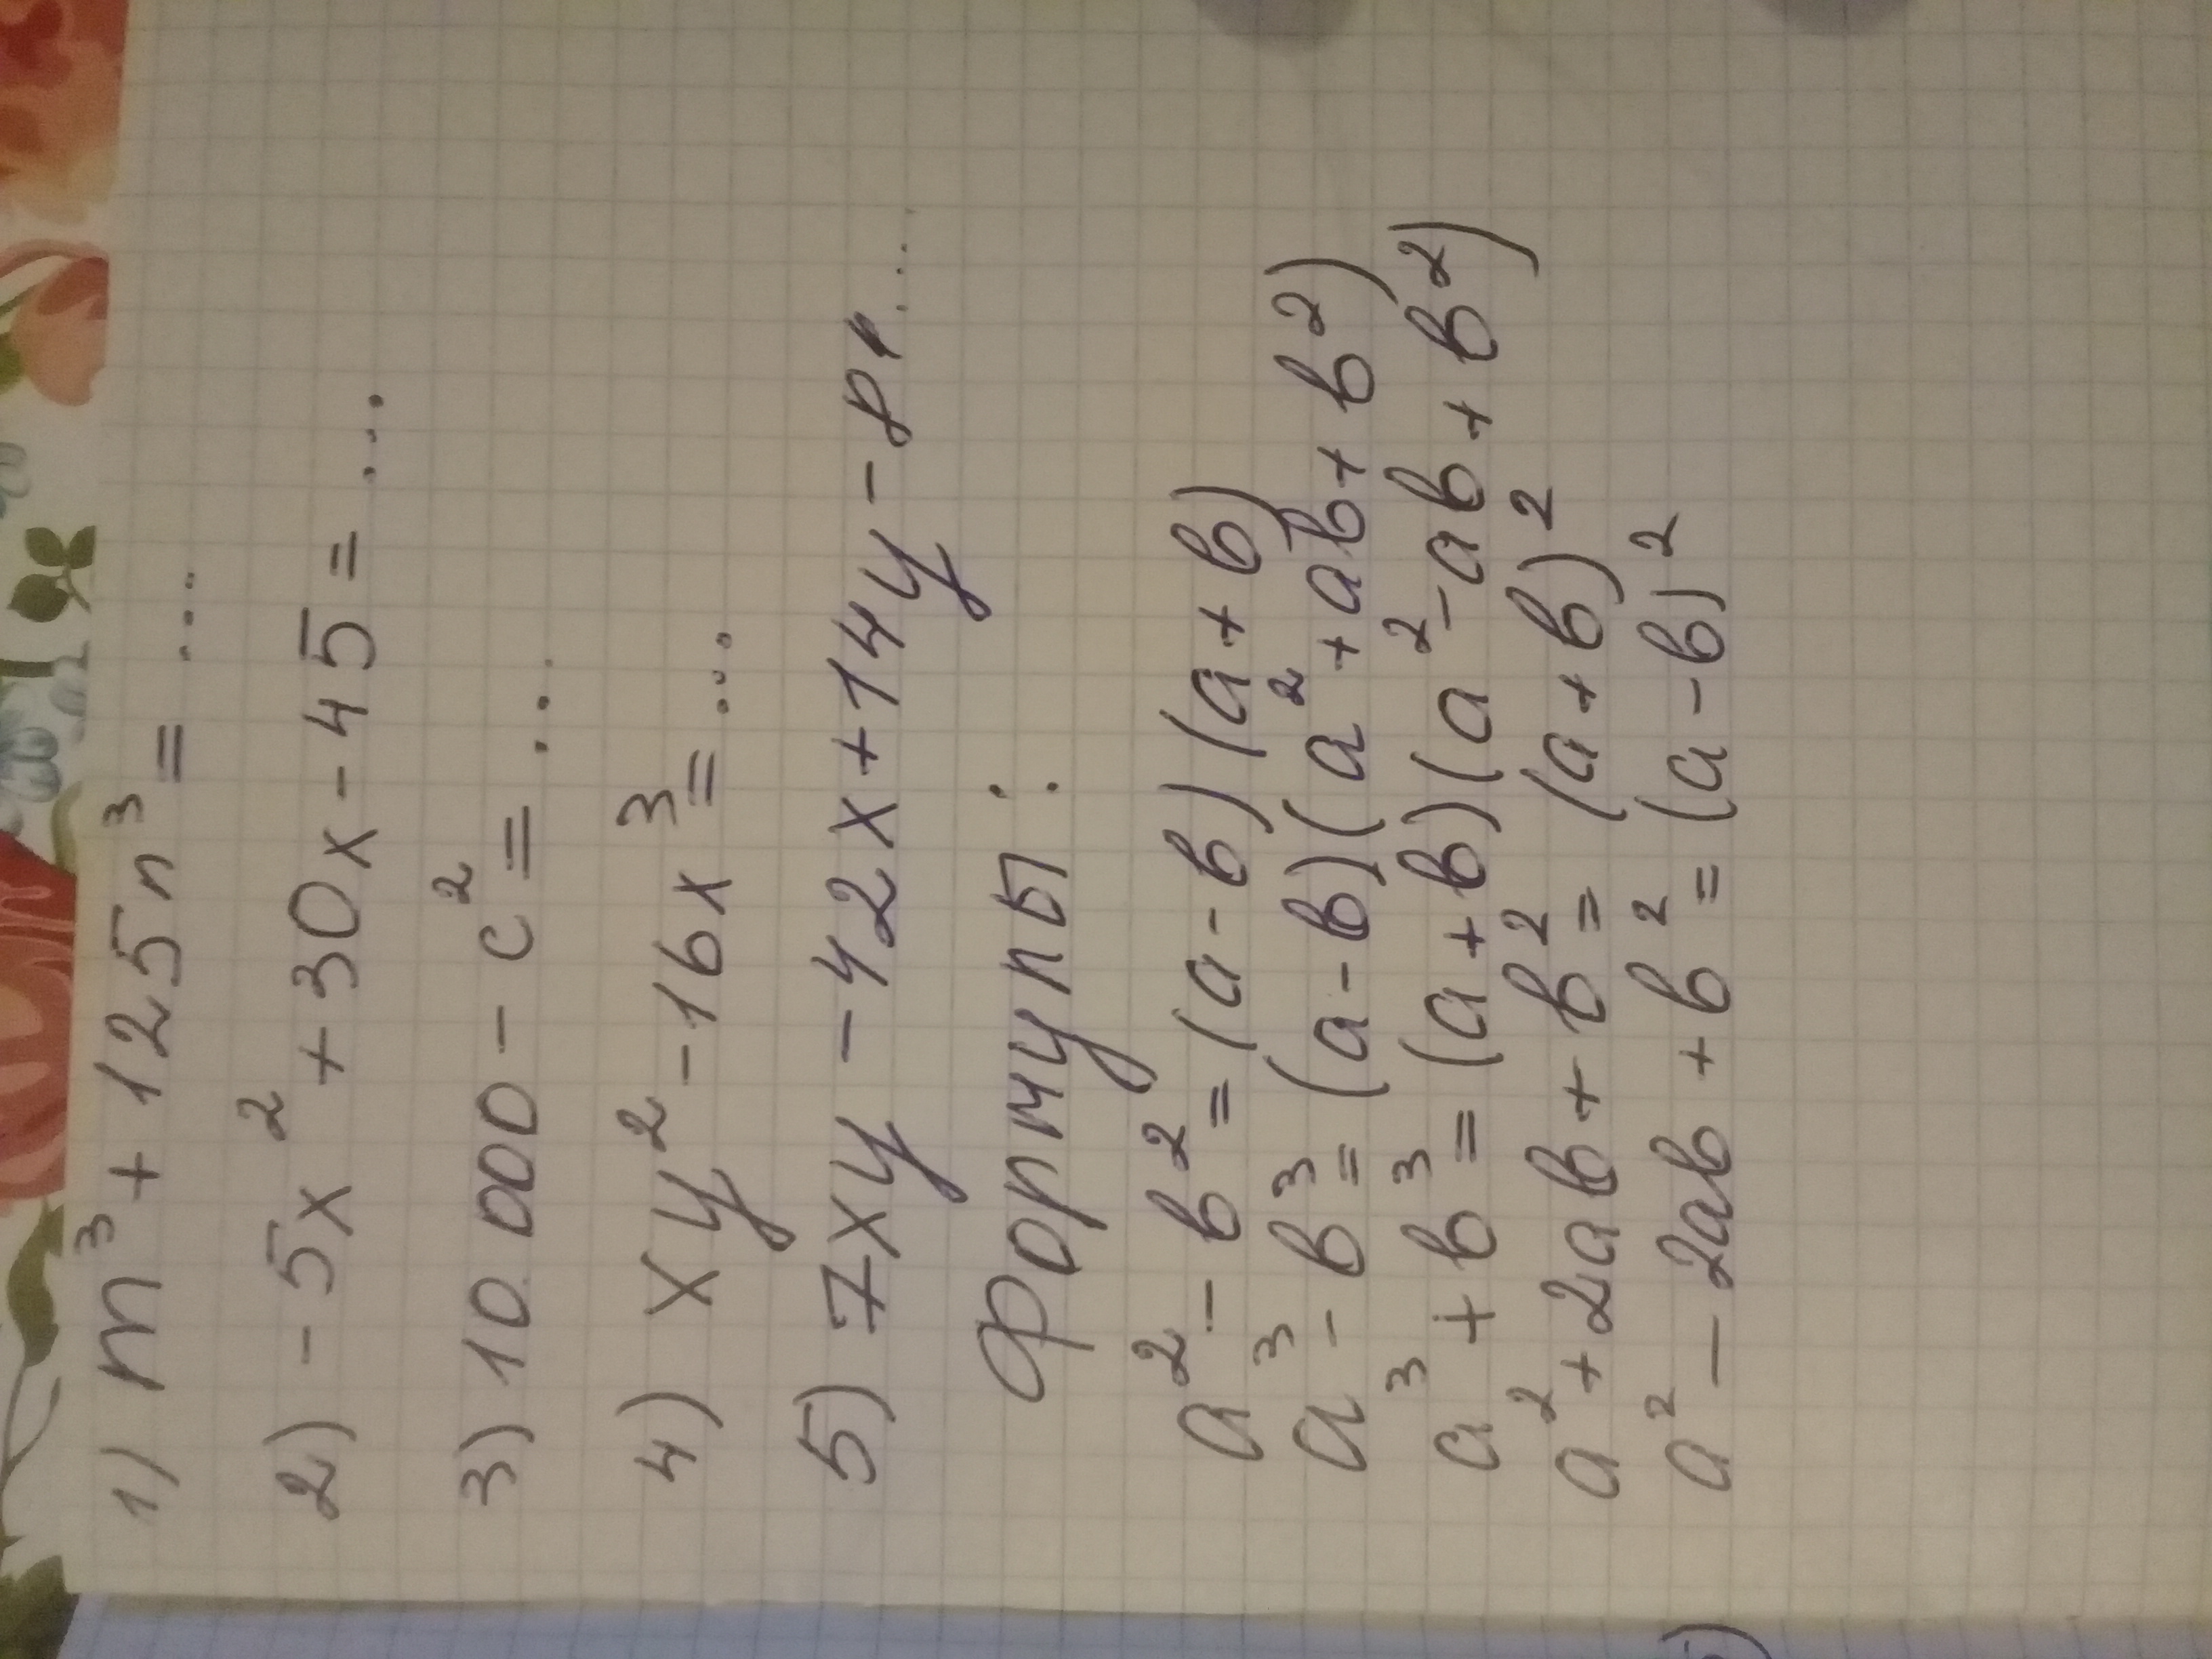 1) m³ + 125n³ = ...
2) - 5x² + 30x - 45 = ...
3) 10.000 - c² = ...
4) xy² - 16x³ = ...
5) 7xy - 42x + 14y - 8 ...
Формулы:
a² - b² = (a - b)(a + b)
a³ - b³ = (a - b)(a² + ab + b²)
a³ + b³ = (a + b)(a² - ab + b²)
a² + 2ab + b² = (a + b)²
a² - 2ab + b² = (a - b)²